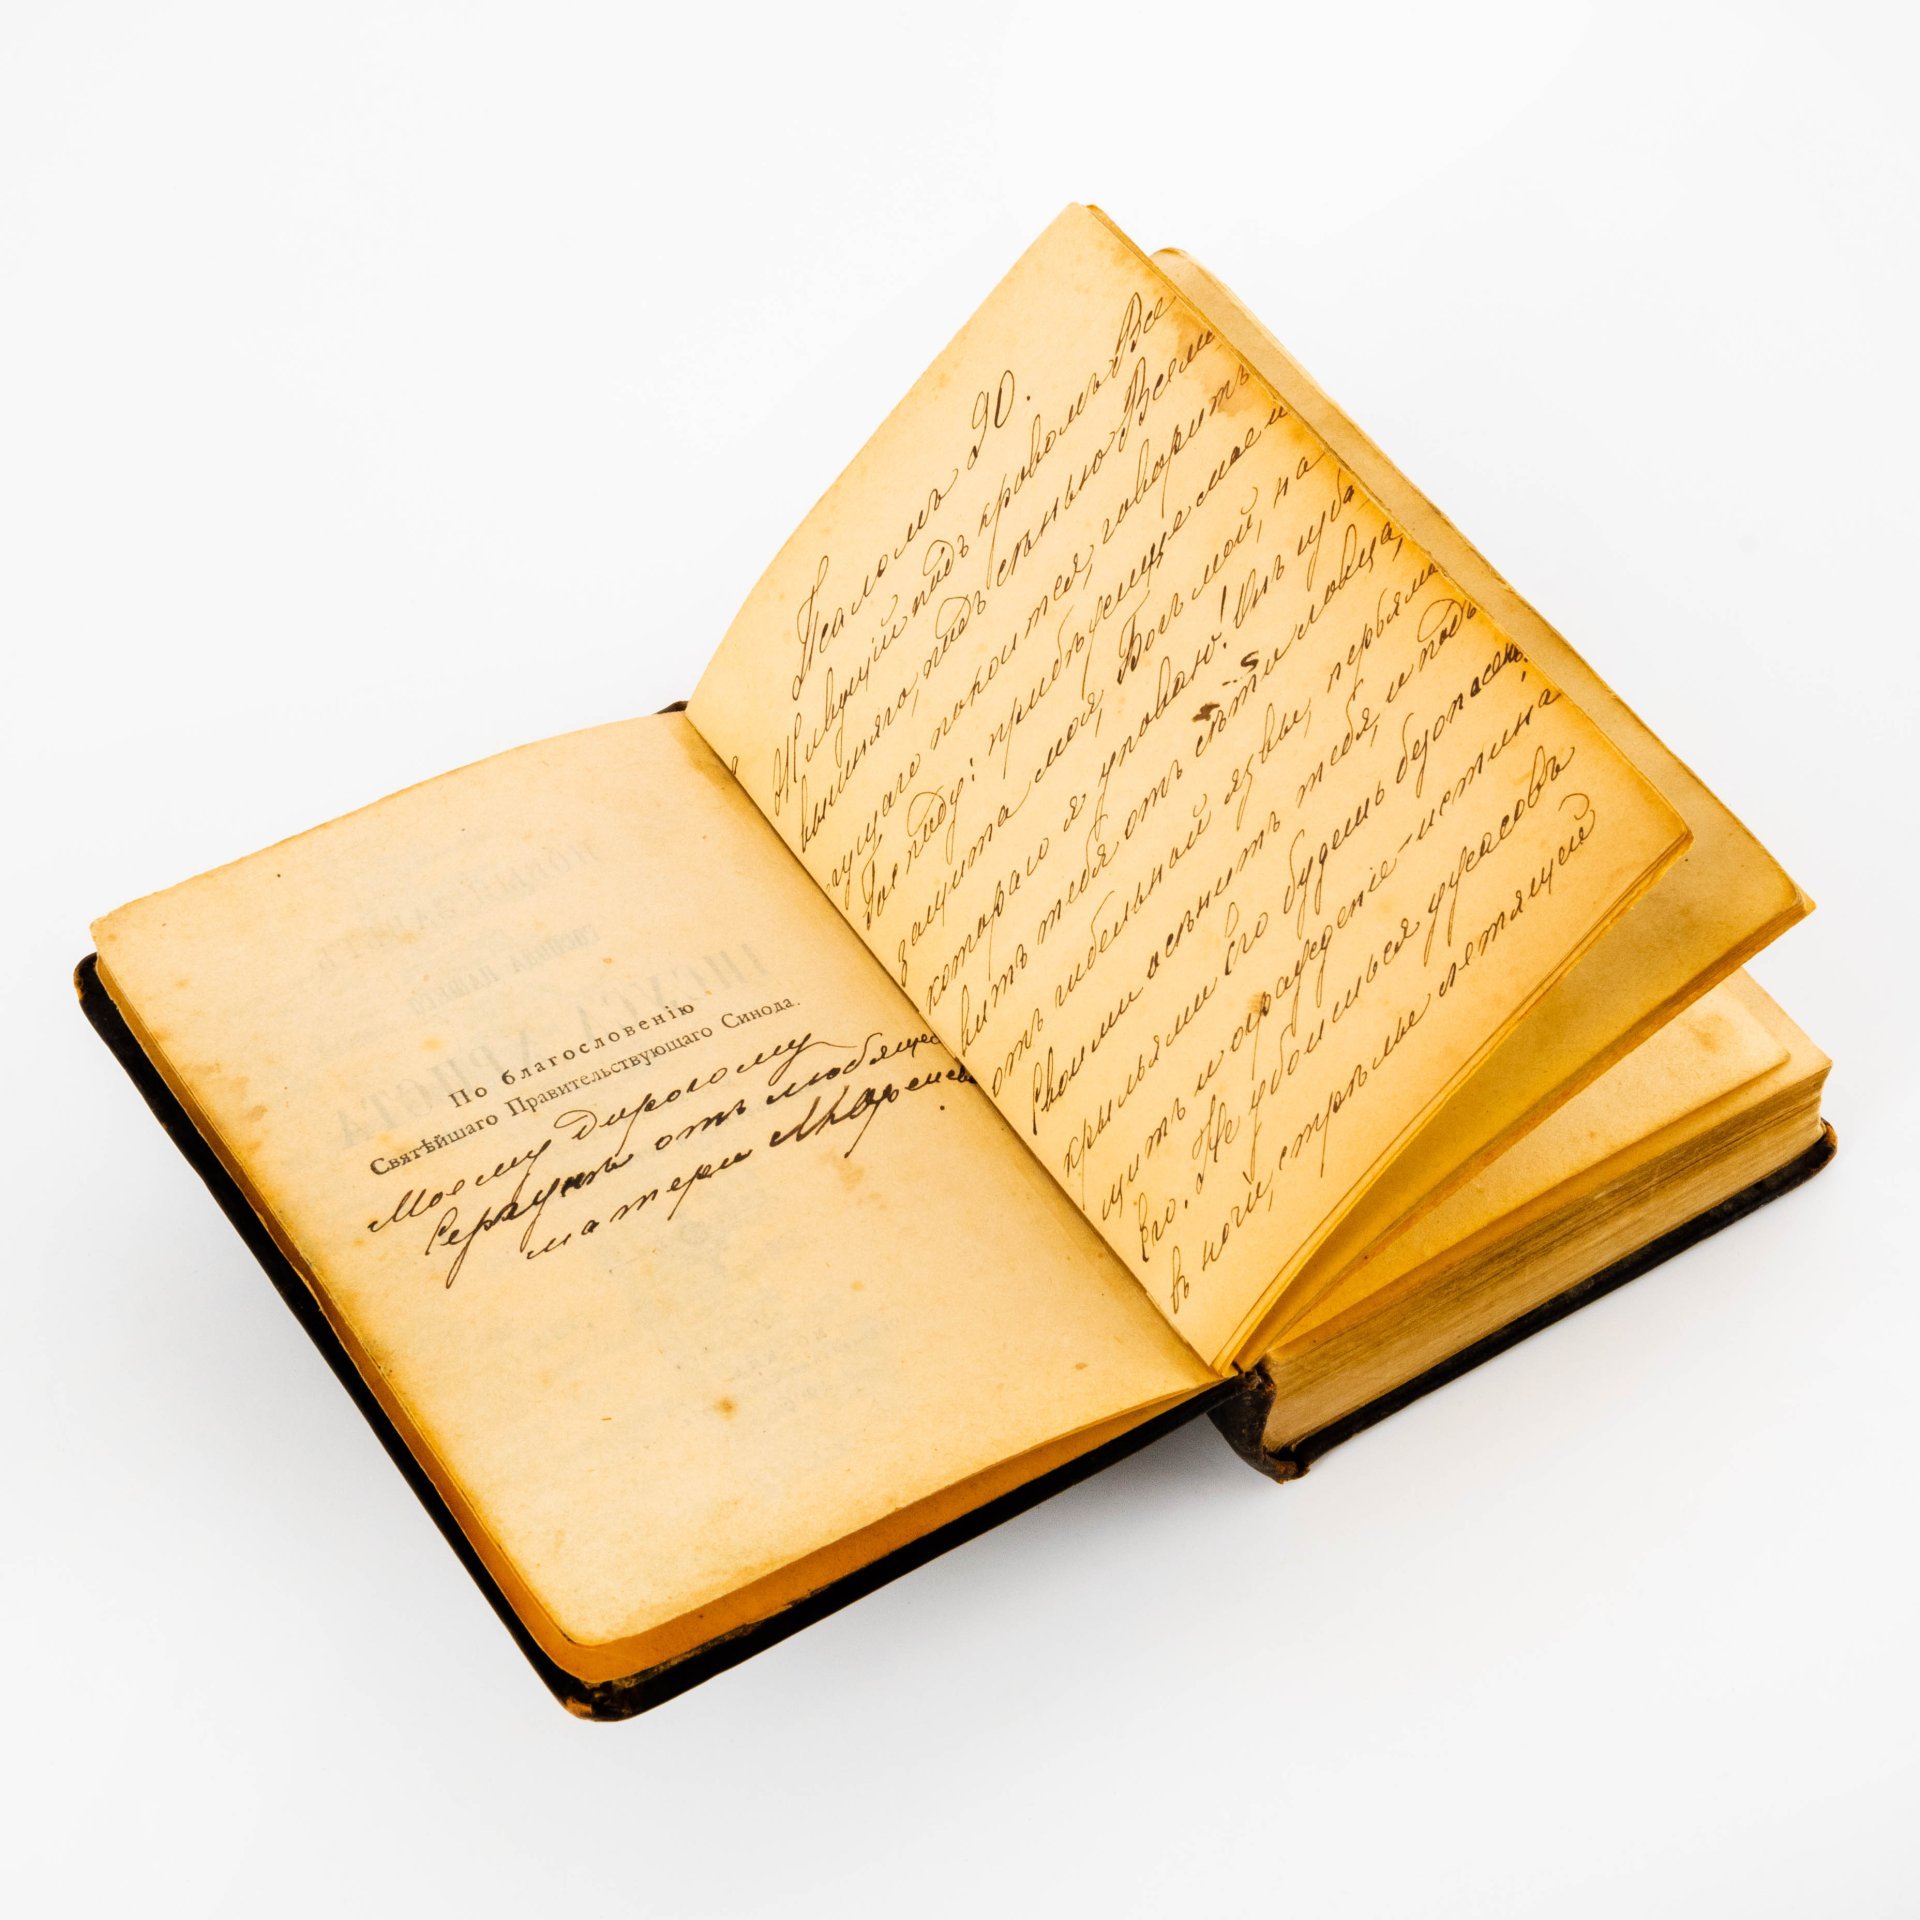 По благословенію
Святѣйшаго Правительствующаго Синода.
Моему дорогому
отъ любящей
матери
Псаломъ 90.
Живущій подъ кровомъ Все
вышняго, подъ сѣнью Всемо
гущаго покоится, говоритъ
Господу: прибѣжище мое и
защита моя, Богъ мой, на
котораго я уповаю! Онъ изба
витъ тебя отъ сѣти ловца,
отъ гибельной язвы, перьями
Своими осѣнитъ тебя, и подъ
крыльями Его будешь безопасенъ;
щитъ и огражденіе - истина
Его. Не убоишься ужасовъ
въ ночи, стрѣлы летящей